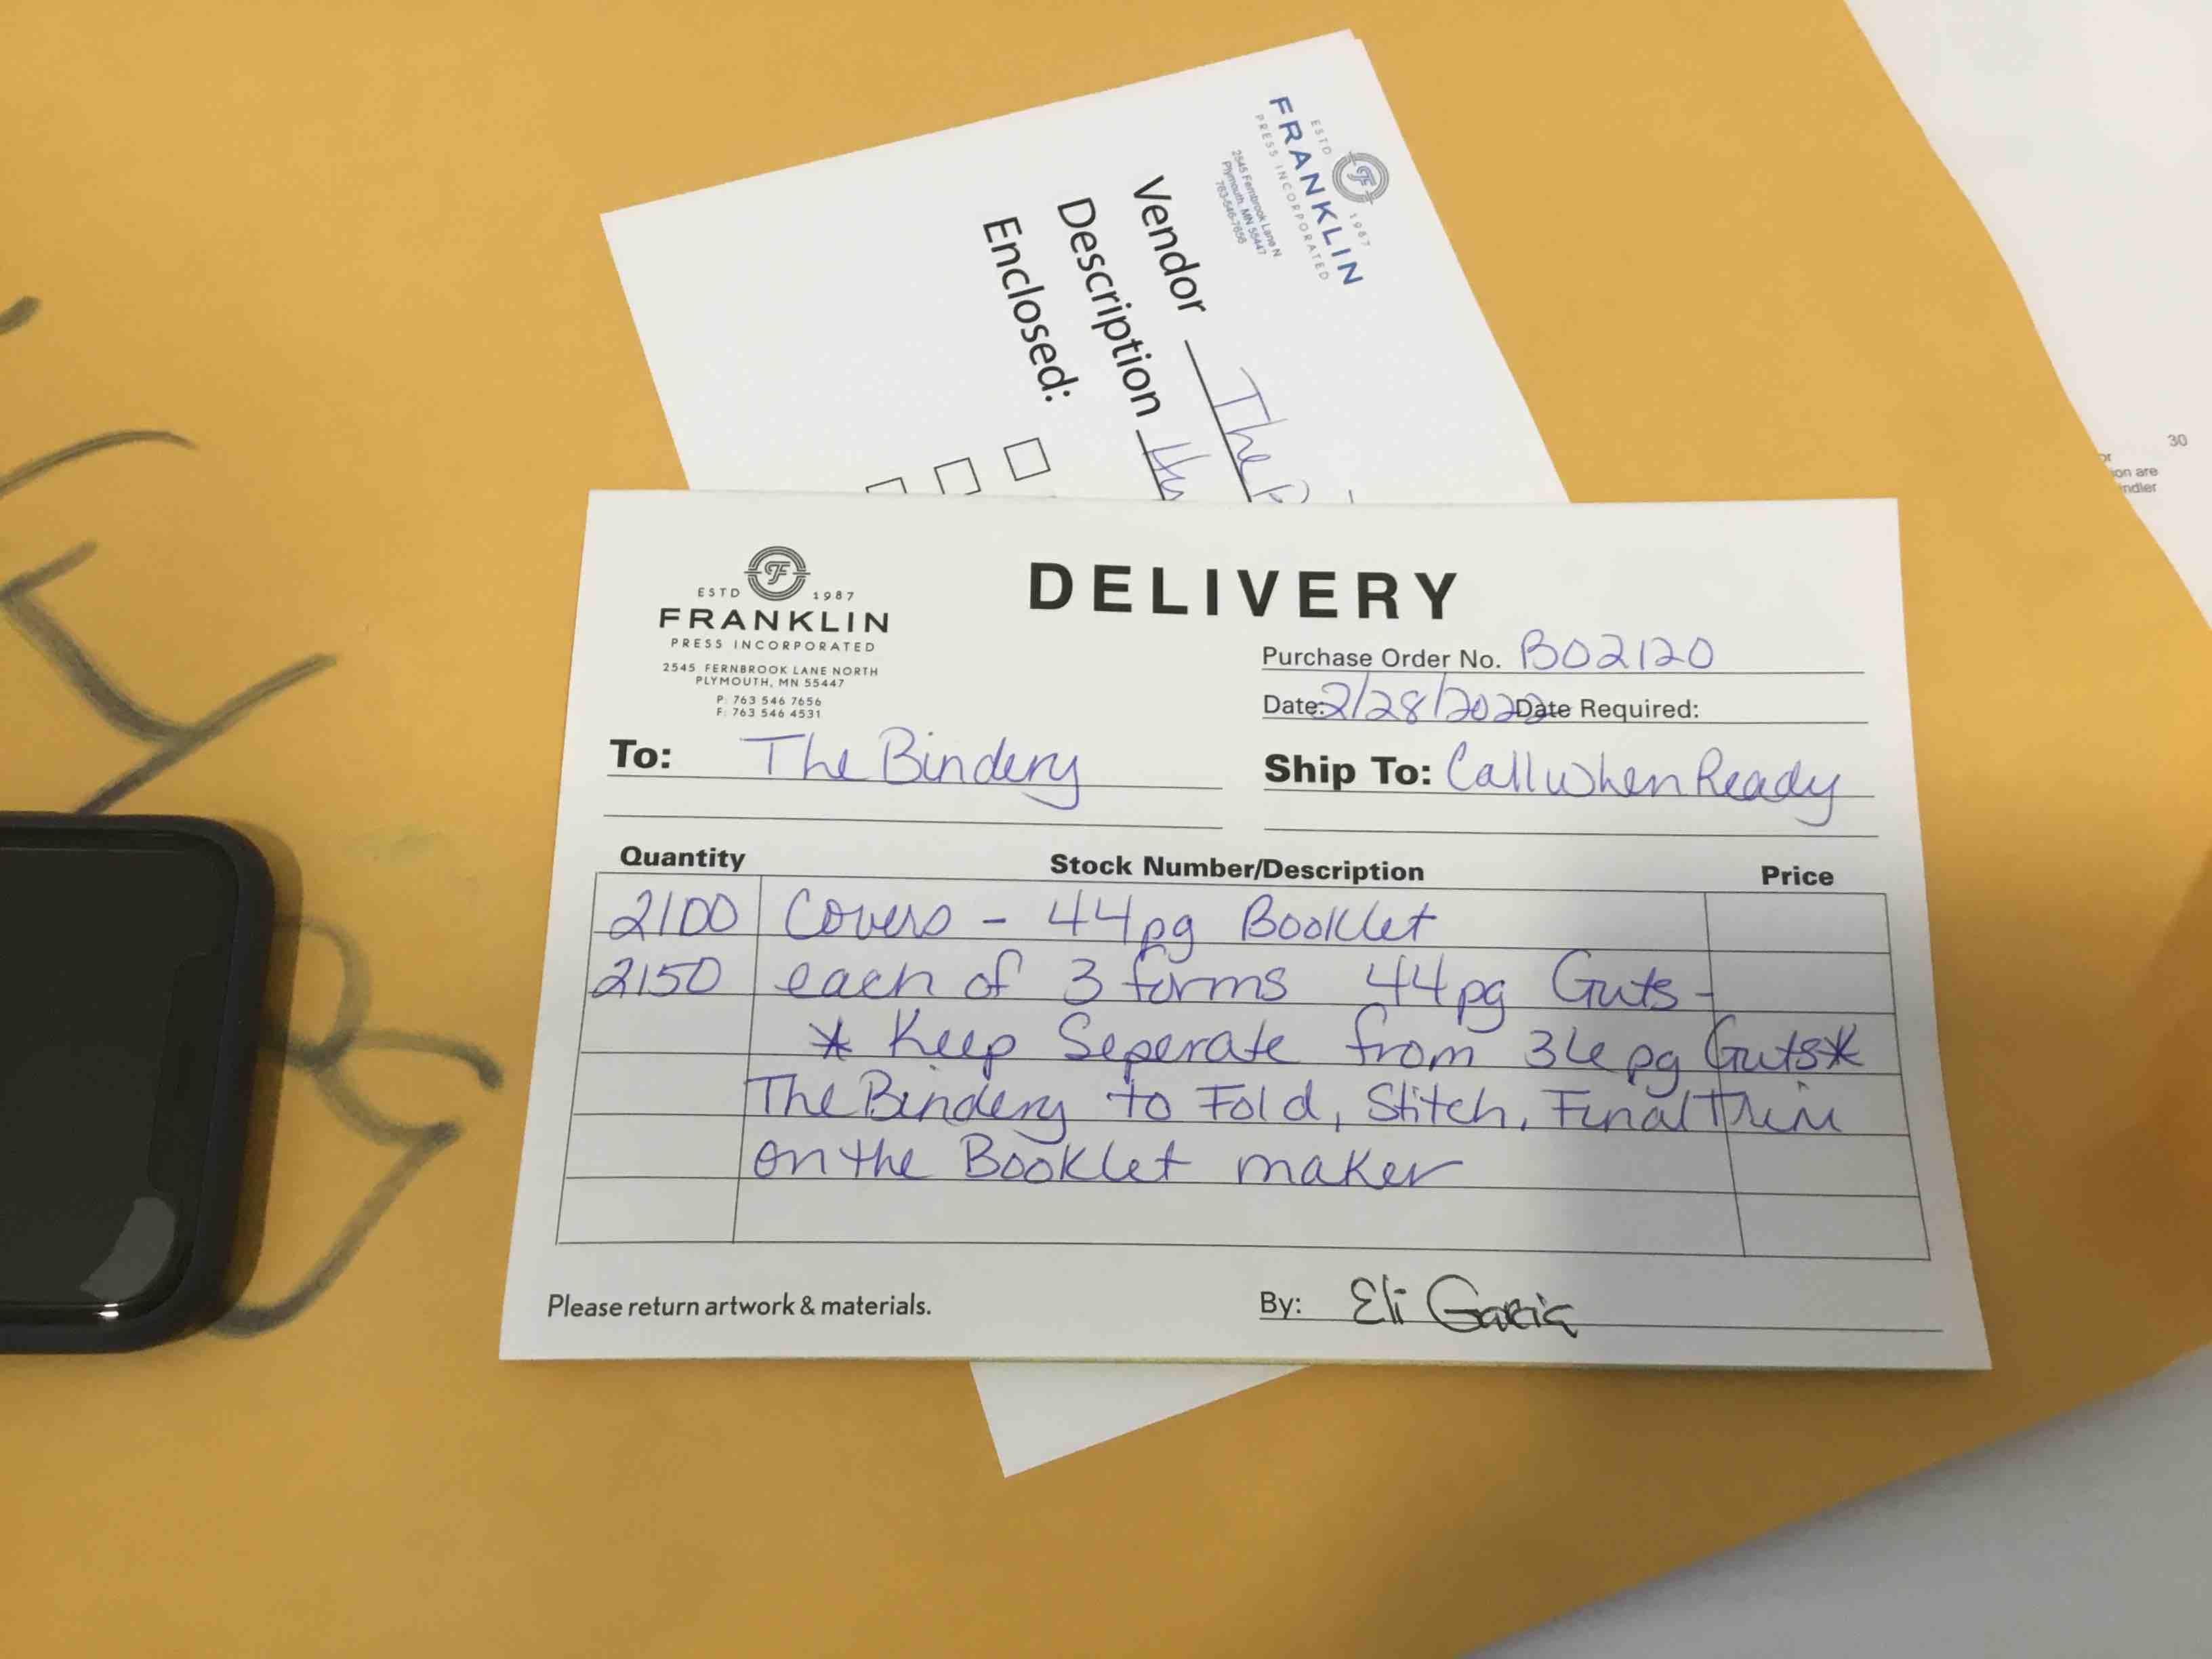 ESTD 1987
FRANKLIN
PRESS INCORPORATED
2545 Fernbrook Lane N
Plymouth, MN 55447
763-546-7656
Vendor The
Description
Enclosed:
30
or
on are
ndler
ESTD 1987
FRANKLIN
PRESS INCORPORATED
2545 FERNBROOK LANE NORTH
PLYMOUTH, MN 55447
P: 763 546 7656
F: 763 546 4531
DELIVERY
Purchase Order No. B02120
Date: 2/28/2022 Date Required:
To: The Bindery
Ship To: Call When Ready
Quantity Stock Number/Description Price
2100 Covers - 44pg Booklet
2150 each of 3 forms 44pg Guts -
* Keep Seperate from 36pg Guts *
The Bindery to Fold, Stitch, Final Trim
on the Booklet maker
Please return artwork & materials.
By: Eli Garcia